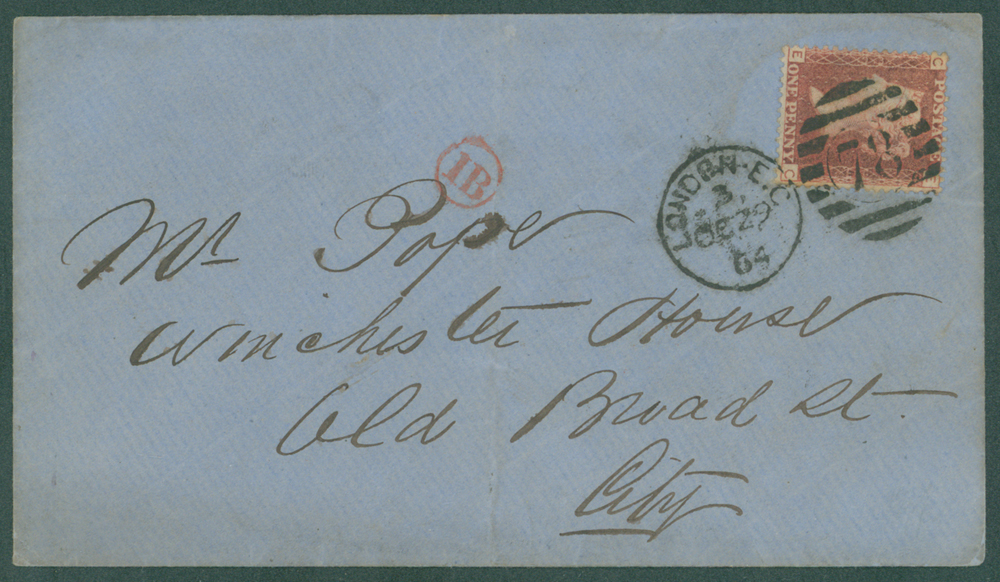 E ONE PENNY C
C POSTAGE E
78
1B
LONDON·E.C
3
DE 29
64
Mr Pope
Winchester House
Old Broad St.
City